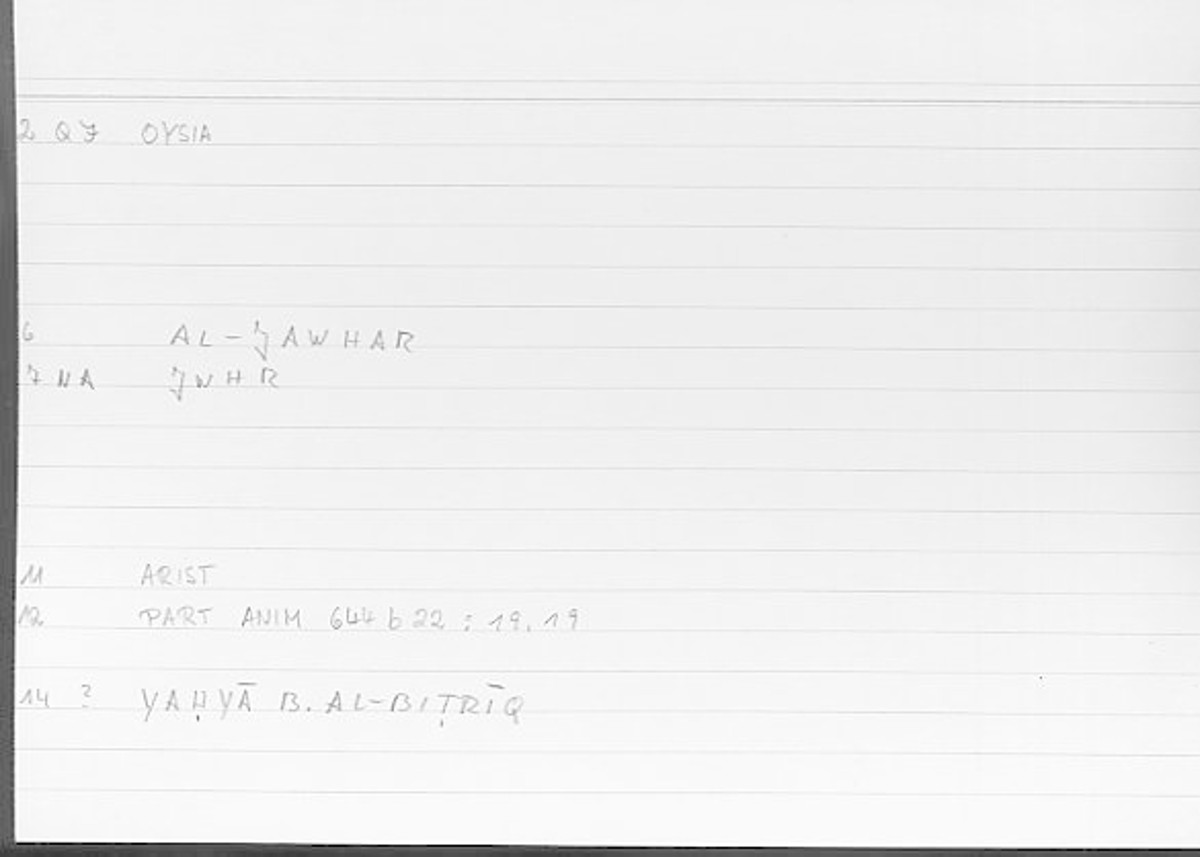 2 QJ OYSIA
6 AL-JAWHAR
7 NA JWHR
11 ARIST
12 PART ANIM 644 b 22 : 19.19
14 ? YAḤYĀ B. AL-BIṬRĪQ